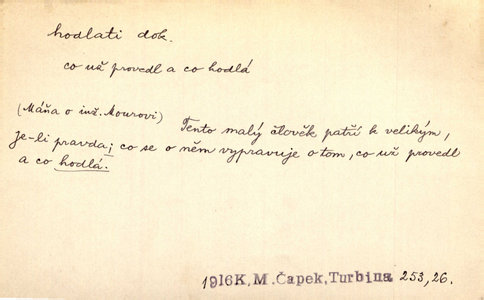 hodlati dok.
co už provedl a co hodlá
(Máňa o inž. Mourovi) Tento malý člověk patří k velikým,
je-li pravda; co se o něm vypravuje o tom, co už provedl
a co hodlá.
1916K,M.Čapek,Turbina 253,26.